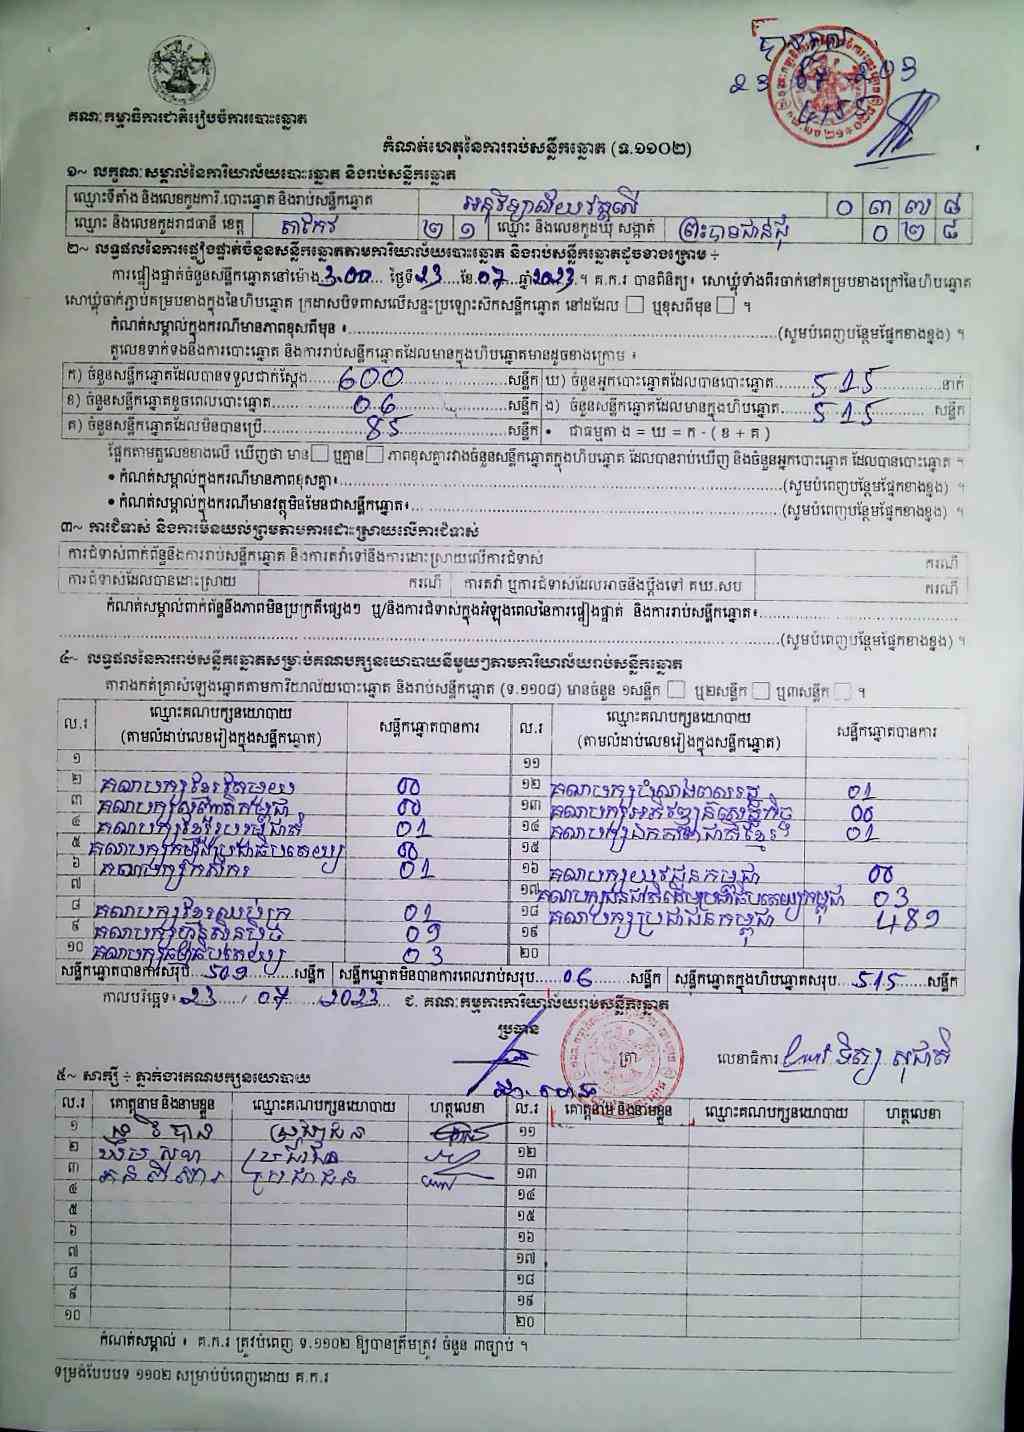 គណៈកម្មាធិការជាតិរៀបចំការបោះឆ្នោត
23 07 2023
កំណត់ហេតុនៃការរាប់សន្លឹកឆ្នោត (ទ.១១០២)
១~ លក្ខណៈសម្គាល់នៃការិយាល័យបោះឆ្នោត និងរាប់សន្លឹកឆ្នោត
ឈ្មោះទីតាំង និងលេខកូដការិ.បោះឆ្នោត និងរាប់សន្លឹកឆ្នោត អនុវិទ្យាល័យវត្ត ០ ៣ ៧ ៨
ឈ្មោះ និងលេខកូដរាជធានី ខេត្ត តាកែវ ២ ១ ឈ្មោះ និងលេខកូដឃុំ សង្កាត់ ព្រះបាទជាន់ជុំ ០ ២ ៨
២~ លទ្ធផលនៃការផ្ទៀងផ្ទាត់ចំនួនសន្លឹកឆ្នោតតាមការិយាល័យបោះឆ្នោត និងរាប់សន្លឹកឆ្នោតដូចខាងក្រោម ÷
ការផ្ទៀងផ្ទាត់ចំនួនសន្លឹកឆ្នោតនៅម៉ោង 3.00 ថ្ងៃទី 23 ខែ 07 ឆ្នាំ 2023 ។ គ.ក.រ បានពិនិត្យ៖ សោឃ្លុំទាំងពីរចាក់នៅគម្របខាងក្រៅនៃហិបឆ្នោត
សោឃ្លុំចាក់ភ្ជាប់គម្របខាងក្នុងនៃហិបឆ្នោត ក្រដាសបិទពាសលើសន្ទះប្រឡោះសិកសន្លឹកឆ្នោត នៅដដែល ☐ ឬខុសពីមុន ☐ ។
កំណត់សម្គាល់ក្នុងករណីមានភាពខុសពីមុន ៖ (សូមបំពេញបន្ថែមផ្នែកខាងខ្នង) ។
តួលេខទាក់ទងនឹងការបោះឆ្នោត និងការរាប់សន្លឹកឆ្នោតដែលមានក្នុងហិបឆ្នោតមានដូចខាងក្រោម ៖
ក) ចំនួនសន្លឹកឆ្នោតដែលបានទទួលជាក់ស្តែង 600 សន្លឹក ឃ) ចំនួនអ្នកបោះឆ្នោតដែលបានបោះឆ្នោត 515 នាក់
ខ) ចំនួនសន្លឹកឆ្នោតខូចពេលបោះឆ្នោត 06 សន្លឹក ង) ចំនួនសន្លឹកឆ្នោតដែលមានក្នុងហិបឆ្នោត 515 សន្លឹក
គ) ចំនួនសន្លឹកឆ្នោតដែលមិនបានប្រើ 85 សន្លឹក • ជាធម្មតា ង = ឃ = ក - ( ខ + គ )
ផ្អែកតាមតួលេខខាងលើ ឃើញថា មាន ☐ ឬគ្មាន ☐ ភាពខុសគ្នារវាងចំនួនសន្លឹកឆ្នោតក្នុងហិបឆ្នោត ដែលបានរាប់ឃើញ និងចំនួនអ្នកបោះឆ្នោត ដែលបានបោះឆ្នោត ។
• កំណត់សម្គាល់ក្នុងករណីមានភាពខុសគ្នា៖ (សូមបំពេញបន្ថែមផ្នែកខាងខ្នង) ។
• កំណត់សម្គាល់ក្នុងករណីមានវត្ថុមិនមែនជាសន្លឹកឆ្នោត៖ (សូមបំពេញបន្ថែមផ្នែកខាងខ្នង) ។
៣~ ការជំទាស់ និងការមិនយល់ព្រមតាមការដោះស្រាយលើការជំទាស់
ការជំទាស់ពាក់ព័ន្ធនឹងការរាប់សន្លឹកឆ្នោត និងការតវ៉ាទៅនឹងការដោះស្រាយលើការជំទាស់ ករណី
ការជំទាស់ដែលបានដោះស្រាយ ករណី ការតវ៉ា ឬការជំទាស់ដែលអាចនឹងប្តឹងទៅ គឃ.សប ករណី
កំណត់សម្គាល់ពាក់ព័ន្ធនឹងភាពមិនប្រក្រតីផ្សេងៗ ឬ/និងការជំទាស់ក្នុងអំឡុងពេលនៃការផ្ទៀងផ្ទាត់ និងការរាប់សន្លឹកឆ្នោត៖
(សូមបំពេញបន្ថែមផ្នែកខាងខ្នង) ។
៤~ លទ្ធផលនៃការរាប់សន្លឹកឆ្នោតសម្រាប់គណបក្សនយោបាយនីមួយៗតាមការិយាល័យរាប់សន្លឹកឆ្នោត
តារាងកត់ត្រាសំឡេងឆ្នោតតាមការិយាល័យបោះឆ្នោត និងរាប់សន្លឹកឆ្នោត (ទ.១១០៨) មានចំនួន ១សន្លឹក ☐ ឬ២សន្លឹក ☐ ឬ៣សន្លឹក ☐ ។
ល.រ ឈ្មោះគណបក្សនយោបាយ (តាមលំដាប់លេខរៀងក្នុងសន្លឹកឆ្នោត) សន្លឹកឆ្នោតបានការ ល.រ ឈ្មោះគណបក្សនយោបាយ (តាមលំដាប់លេខរៀងក្នុងសន្លឹកឆ្នោត) សន្លឹកឆ្នោតបានការ
១ ១១
២ គណបក្ស 00 ១២ គណបក្ស 01
៣ គណបក្ស កម្ពុជា 00 ១៣ គណបក្ស 00
៤ គណបក្សខ្មែររួបរួមជាតិ 01 ១៤ គណបក្សឯកភាពជាតិខ្មែរ 01
៥ គណបក្សកម្លាំងប្រជាធិបតេយ្យ 00 ១៥
៦ គណបក្សកសិករ 01 ១៦ គណបក្សយុវជនកម្ពុជា 00
៧ ១៧ គណបក្សជនជាតិដើមប្រជាធិបតេយ្យកម្ពុជា 03
៨ គណបក្សខ្មែរឈប់ក្រ 01 ១៨ គណបក្សប្រជាជនកម្ពុជា 489
៩ គណបក្សហ៊្វុនស៊ិនប៉ិច 09 ១៩
១០ គណបក្ស 03 ២០
សន្លឹកឆ្នោតបានការសរុប 509 សន្លឹក សន្លឹកឆ្នោតមិនបានការពេលរាប់សរុប 06 សន្លឹក សន្លឹកឆ្នោតក្នុងហិបឆ្នោតសរុប 515 សន្លឹក
កាលបរិច្ឆេទ៖ 23 / 07 / 2023 ជ. គណៈកម្មការការិយាល័យរាប់សន្លឹកឆ្នោត
ប្រធាន
ត្រា
លេខាធិការ
៥~ សាក្សី ÷ ភ្នាក់ងារគណបក្សនយោបាយ
ល.រ គោត្តនាម និងនាមខ្លួន ឈ្មោះគណបក្សនយោបាយ ហត្ថលេខា ល.រ គោត្តនាម និងនាមខ្លួន ឈ្មោះគណបក្សនយោបាយ ហត្ថលេខា
១ ប្រជាជន ១១
២ ប្រជាជន ១២
៣ ប្រជាជន ១៣
៤ ១៤
៥ ១៥
៦ ១៦
៧ ១៧
៨ ១៨
៩ ១៩
១០ ២០
កំណត់សម្គាល់ ៖ គ.ក.រ ត្រូវបំពេញ ទ.១១០២ ឱ្យបានត្រឹមត្រូវ ចំនួន ៣ច្បាប់ ។
ទម្រង់បែបបទ ១១០២ សម្រាប់បំពេញដោយ គ.ក.រ